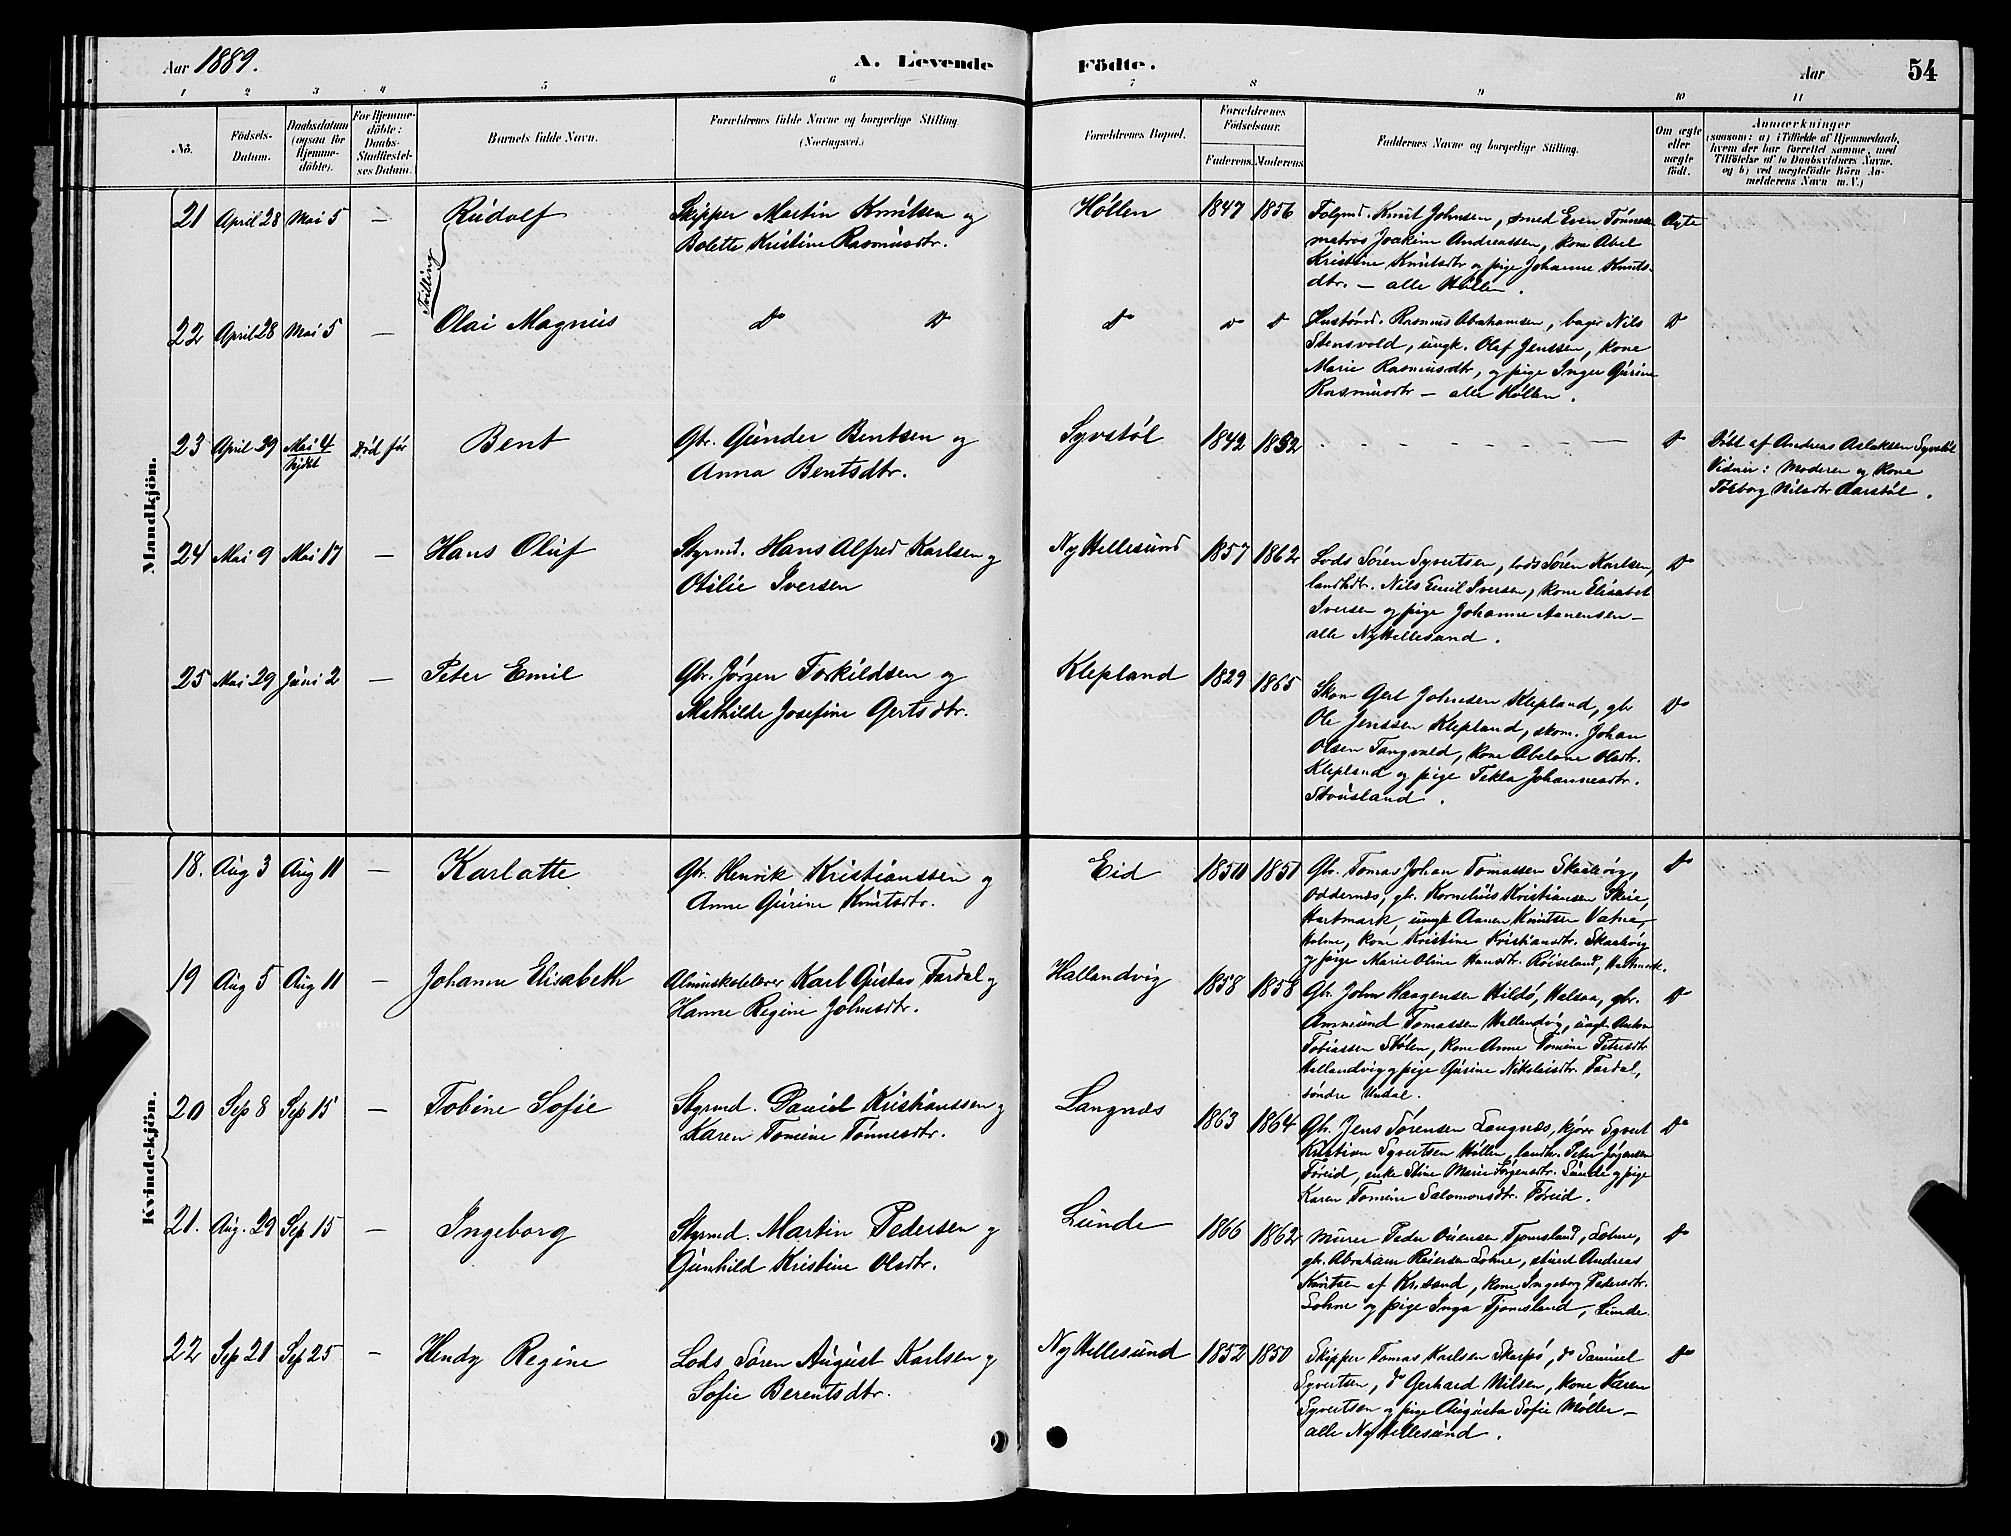 Aar 1889.
A. Levende Födte.
Aar 54
1 2 3 4 5 6 7 8 9 10 11
No.
Födsels-Datum.
Daabsdatum (ogsaa for Hjemmedöbte).
For Hjemmedöbte: Daabs-Stadfæstelses Datum.
Barnets fulde Navn.
Forældrenes fulde Navne og borgerlige Stilling (Næringsvei.)
Forældrenes Bopæl.
Forældrenes Födselsaar.
Faderens. Moderens.
Faddernes Navne og borgerlige Stilling.
Om ægte eller uægte födt.
Anmærkninger
(saasom: a) i Tilfælde af Hjemmedaab, hvem der har forrettet samme, med Tilföielse af to Daabsvidners Navne. og b) ved uægtefödte Börn Anmelderens Navn m. V.)
Mandkjön.
21 April 28 Mai 5 — Rudolf
Skipper Martin Knutsen og
Bolette Kristine Rasmusdtr.
Høllen 1847 1856
Folgmd. Knut Johnsen, smed Even Tønnes
matros Joakim Andreassen, kone Abel
Kristine Knutsdtr og pige Johanne Knuts-
dtr. — alle Høllen.
Ægte
Tvilling
22 April 28 Mai 5 — Olai Magnus
do do
do do do
Husbond. Rasmus Abrahamsen, bager Nils
Stensvold, ungk. Olaf Jenssen, kone
Marie Rasmusdtr, og pige Inger Gurine
Rasmusdtr — alle Høllen.
do
23 April 29 Mai 4 hjdøbt Død før Bent
Gbr. Gunder Bentsen og
Anna Bentsdtr.
Syvstøl 1842 1852
do
Døbt af Andreas Aslaksen Syvstøl
Vidner: Moderen og Kone
Tolborg Nilsdtr Aarstøl.
24 Mai 9 Mai 17 — Hans Oluf
Styrmd. Hans Alfred Karlsen og
Otilie Iversen
Ny Hellesund 1857 1862
Lods Søren Syvertsen, lods Søren Karlsen,
landhdr. Nils Emil Iversen, kone Elisabet
Iversen og pige Johanne Aanensen —
alle Ny Hellesund.
do
25 Mai 29 Juni 2 — Peter Emil
Gbr. Jørgen Torkildsen og
Mathilde Josefine Gertsdtr.
Klepland 1829 1865
Skom Gert Johnsen Klepland, gbr
Ole Jenssen Klepland, skom. Johan
Olsen Tangvald, kone Abelone Olsdtr.
Klepland og pige Tekla Johannesdtr.
Stousland.
do
Kvindekjön.
18. Aug 3 Aug 11 — Karlotte
Gbr. Henrik Kristianssen og
Anne Gurine Knutsdtr.
Eid 1850 1851
Gbr. Tomas Johan Tomassen Skaalvig,
Oddernes, gbr. Kornelius Kristiansen Skeie,
Hartmark, ungk Aanen Knutsen Vatne,
Holme, kone Kristine Kristiansdtr. Skaalvig
og pige Marie Oline Hansdtr. Røiseland, Hartmark.
do
19 Aug 5 Aug 11 — Johanne Elisabeth
Almuskolelærer Karl Gustav Fardal og
Hanne Regine Johnsdtr.
Hallandvig 1858 1858
Gbr. John Haagensen Hildø, Halsaa, gbr.
Ammund Tomassen Hallandvig, ungk. Anton
Tobiassen Stølen, kone Anne Tomine Petersdtr
Hallandvig og pige Gurine Nikolaisdtr. Fardal,
søndre Undal.
do
20 Sep 8 Sep 15 — Tobine Sofie
Styrmd. Daniel Kristianssen og
Karen Tomine Tønnesdtr.
Langnæs 1863 1864
Gbr. Jens Sørensen Langnæs, kjører Syvert
Kristian Syvertsen Høllen, landhr. Peter Jørgensen
Føreid, enke Stine Marie Jørgensdtr. Lunde og pige
Karen Tomine Salomonsdtr. Føreid.
do
21. Aug. 29 Sep 15 — Ingeborg
Styrmd. Martin Pedersen og
Gunhild Kristine Olsdtr.
Lunde 1866 1862
Murer Peder Ouensen Tjomsland, Lohne,
gbr. Abraham Reiersen Lohne, stuert Andreas
Knutsen af Krsand, kone Ingeborg Pedersdtr.
Lohne og pige Inga Tjomsland, Lunde.
do
22 Sep 21 Sep 25 — Hendy Regine
Lods Søren August Karlsen og
Sofie Berentsdtr.
Ny Hellesund 1852 1850
Skipper Tomas Karlsen Skarpø, do Samuel
Syvertsen, do Gerhard Nilsen, kone Karen
Syvertsen og pige Augusta Sofie Møller —
alle Ny Hellesund.
do